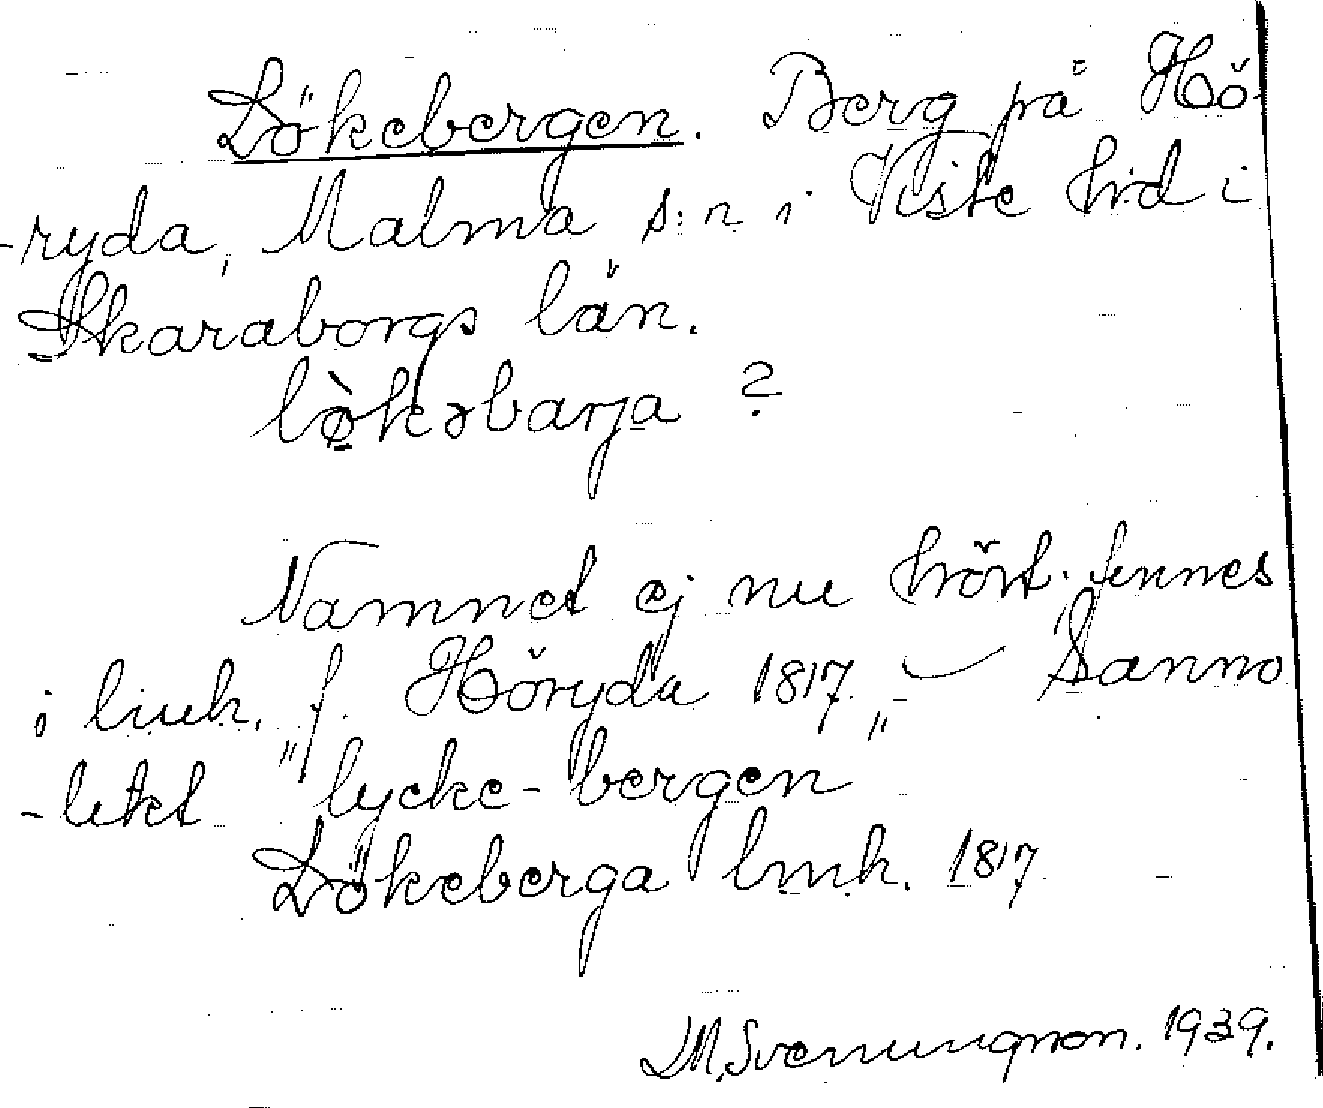 Lökebergen. Berg på Hö-
-ryda, Malma s:n i Viste hd i
Skaraborgs län.
lø̀kəbarja ?
Namnet ej nu hört, finnes
i lmk. f. Höryda 1817. — Sanno
-likt "lycke-bergen"
Lökeberga lmk. 1817
M. Svenungson. 1939.